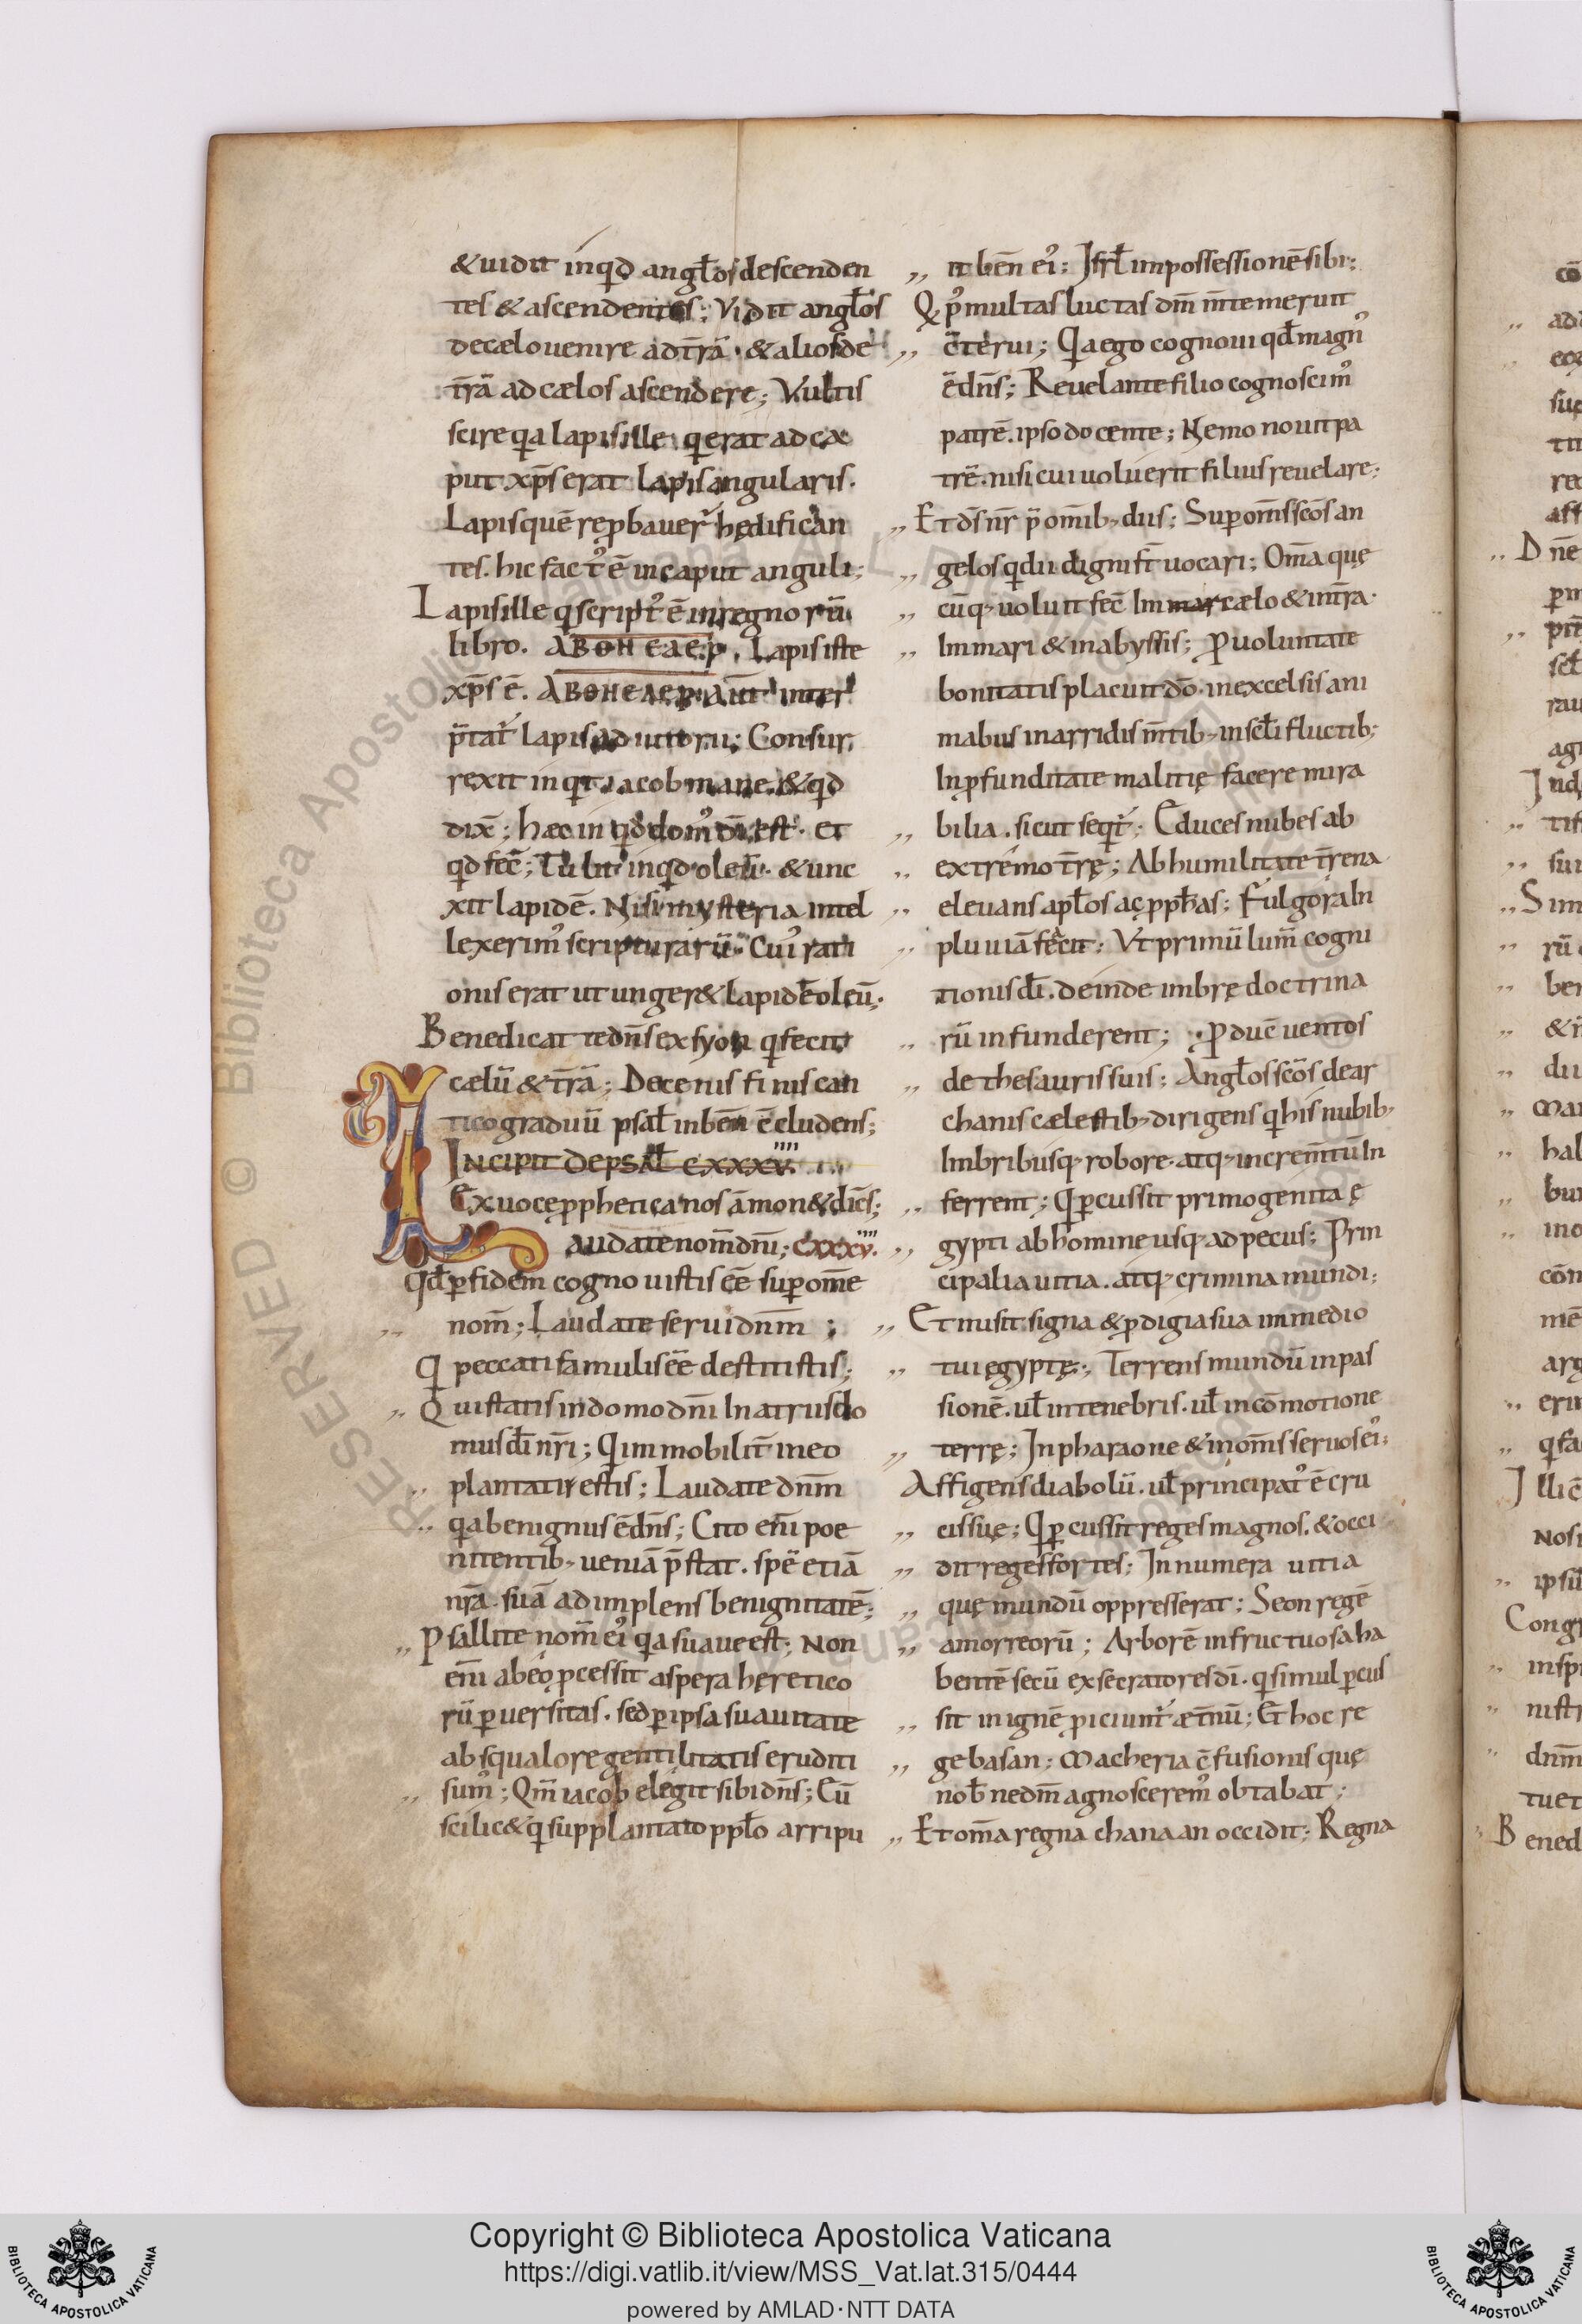 &uidit inqd angl̄os descenden
tes & ascendentes; Vidit angl̄os
de cælo uenire ad t̄rā · & alios de
t̄rā ad cælos ascendere; Vultis
scire qa lapis ille q erat ad ca
put xp̄s erat lapis angularis.
Lapis quē repbauer̄ hedifican
tes. hic fact᾿ ē in caput anguli;
Lapis ille q script᾿ ē in regnorū
libro. ABOHEAEP. Lapis iste
xp̄s ē. ABOHEAEP aut̄ inter
p̄tat᾿ lapis adiutorii; Consur
rexit inqt iacob mane. & qd
dix̄; hæc inqd dom᾿ dī est. et
qd fec̄; Tulit inqd oleū. & unc
xit lapidē. Nisi mysteria intel
lexerim᾿ scripturarū. Cui᾿ rati
onis erat ut unger& lapidē oleū;
Benedicat te dn̄s ex syon q fecit
cælū & t̄rā; Decenis finis can
tico graduū psal̄ in ben̄ c̄cludens;
Incipit de psal̄ cxxxv.ıııı
Ex uoce pphetica nos āmon& dic̄s;
Laudate nom̄ dn̄i; cxxxv.ıııı
Qd̄ p fidem cognouistis ēē sup om̄e
„ nom̄; Laudate serui dn̄m;
Q peccati famulis ēē destitistis;
„ Qui statis in domo dn̄i In atriis do
mus dī n̄ri; Q immobilit̄ in eo
„ plantati estis; Laudate dn̄m
„ qa benignus ē dn̄s; Cito eni poe
nitentib; ueniā p̄stat. spē etiā
n̄rā. suā adimplens benignitatē;
„ Psallite nom̄ ei᾿ qa suaue est; Non
eni ab eo pcessit aspera heretico
rū puersitas. sed p ipsa suauitate
ab squalore gentilitatis eruditi
„ sum᾿; Qm̄ iacob elegit sibi dn̄s; Eū
scilic& q supplantato ppl̄o arripu
„ it ben̄ ei᾿; Isrl̄ in possessionē sibi;
Q p᾿ multas luctas dm̄ m̄te meruit
„ c̄terui; Qa ego cognoui qd̄ magn᾿
ē dn̄s; Reuelante filio cognoscim᾿
patrē. ipso docente; Nemo nouit pa
trē. nisi cui uoluerit filius reuelare;
„ Et ds̄ nr̄ p̄ omib; diis; Sup om̄s scōs an
„ gelos q dii digni st̄ uocari; Oma quę
„ cūq; uoluit fec̄ In mar cælo & in t̄ra.
„ In mari & in abyssis; P uoluntate
bonitatis placuit dō. in excelsis ani
mabus in arridis m̄tib; in scl̄i fluctib;
In pfunditate malitię facere mira
„ bilia. sicut seqt᾿; Educes nubes ab
„ extremo t̄rę; Ab humilitate t̄rena
„ eleuans apl̄os ac pph̄as; Fulgora In
„ pluuiā fecit; Vt primū lum̄ cogni
tionis dī. deinde imbrę doctrina
„ rū infunderent; P duc̄ uentos
„ de thesauris suis; Angl̄os scōs de ar
chanis cælestib; dirigens q his nubib;
Imbribusq; robore. atq; increm̄tū In
„ ferrent; Q pcussit primogenita ę
„ gypti ab homine usq; ad pecus; Prin
cipalia uitia. atq; crimina mundi;
„ Et misit signa & pdigia sua in medio
„ tui egyptę; Terrens mundū in pas
sionē. ul̄ in tenebris. ul̄ in cōmotione
„ terrę; In pharaone & in om̄s seruos ei᾿;
Affigens diabolū. ul̄ principat᾿ ē cru
„ cis suę; Q pcussit reges magnos. & occi
„ dit reges fortes; Innumera uitia
„ quę mundū oppresserat; Seon regē
„ amorreorū; Arborē infructuosa ha
bentē secū exsecratores dī. q simul pcus
„ sit in ignē piciunt᾿ æt̄nū; Et hoc re
„ ge basan; Macheria c̄fusionis quę
nob̄ ne dm̄ agnoscerem᾿ obtabat;
„ Et oma regna chanaan occidit; Regna
RESERVED © Biblioteca Apostolica Vaticana
Copyright © Biblioteca Apostolica Vaticana
https://digi.vatlib.it/view/MSS_Vat.lat.315/0444
powered by AMLAD·NTT DATA
BIBLIOTECA APOSTOLICA VATICANA
BIBLIOTECA APOSTOLICA VATICANA